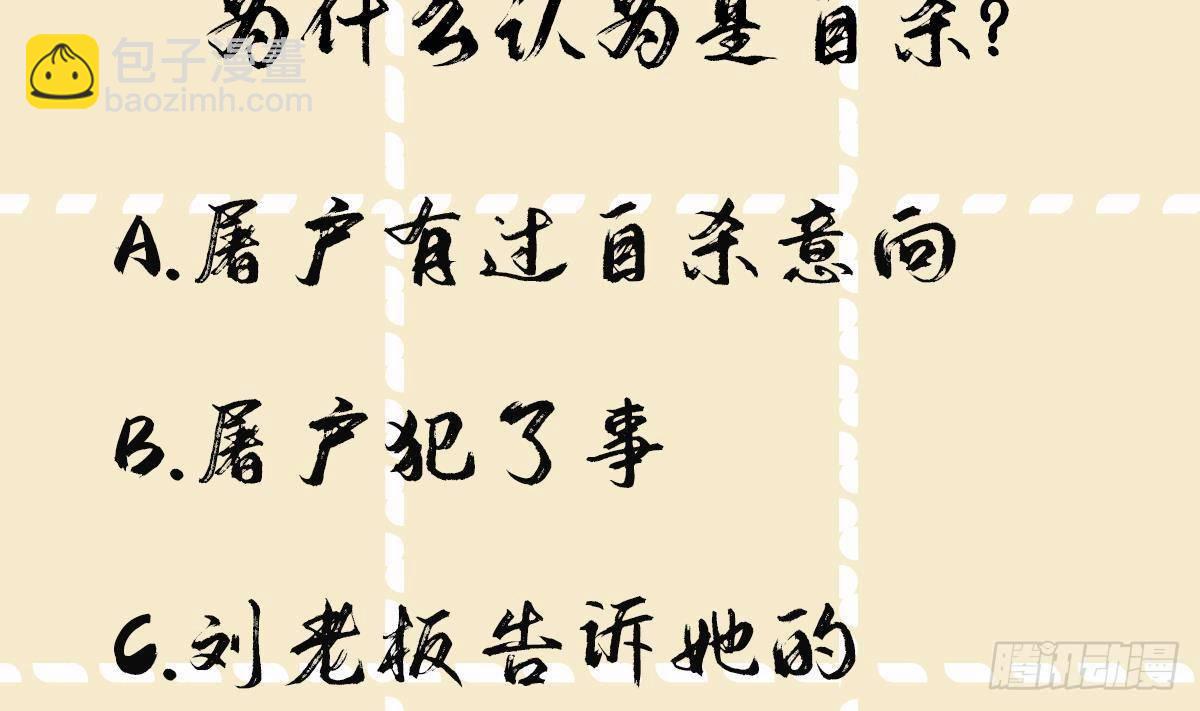 为什么认为是自杀?
包子漫畫
baozimh.com
A.屠户有过自杀意向
B.屠户犯了事
C.刘老板告诉她的
腾讯动漫